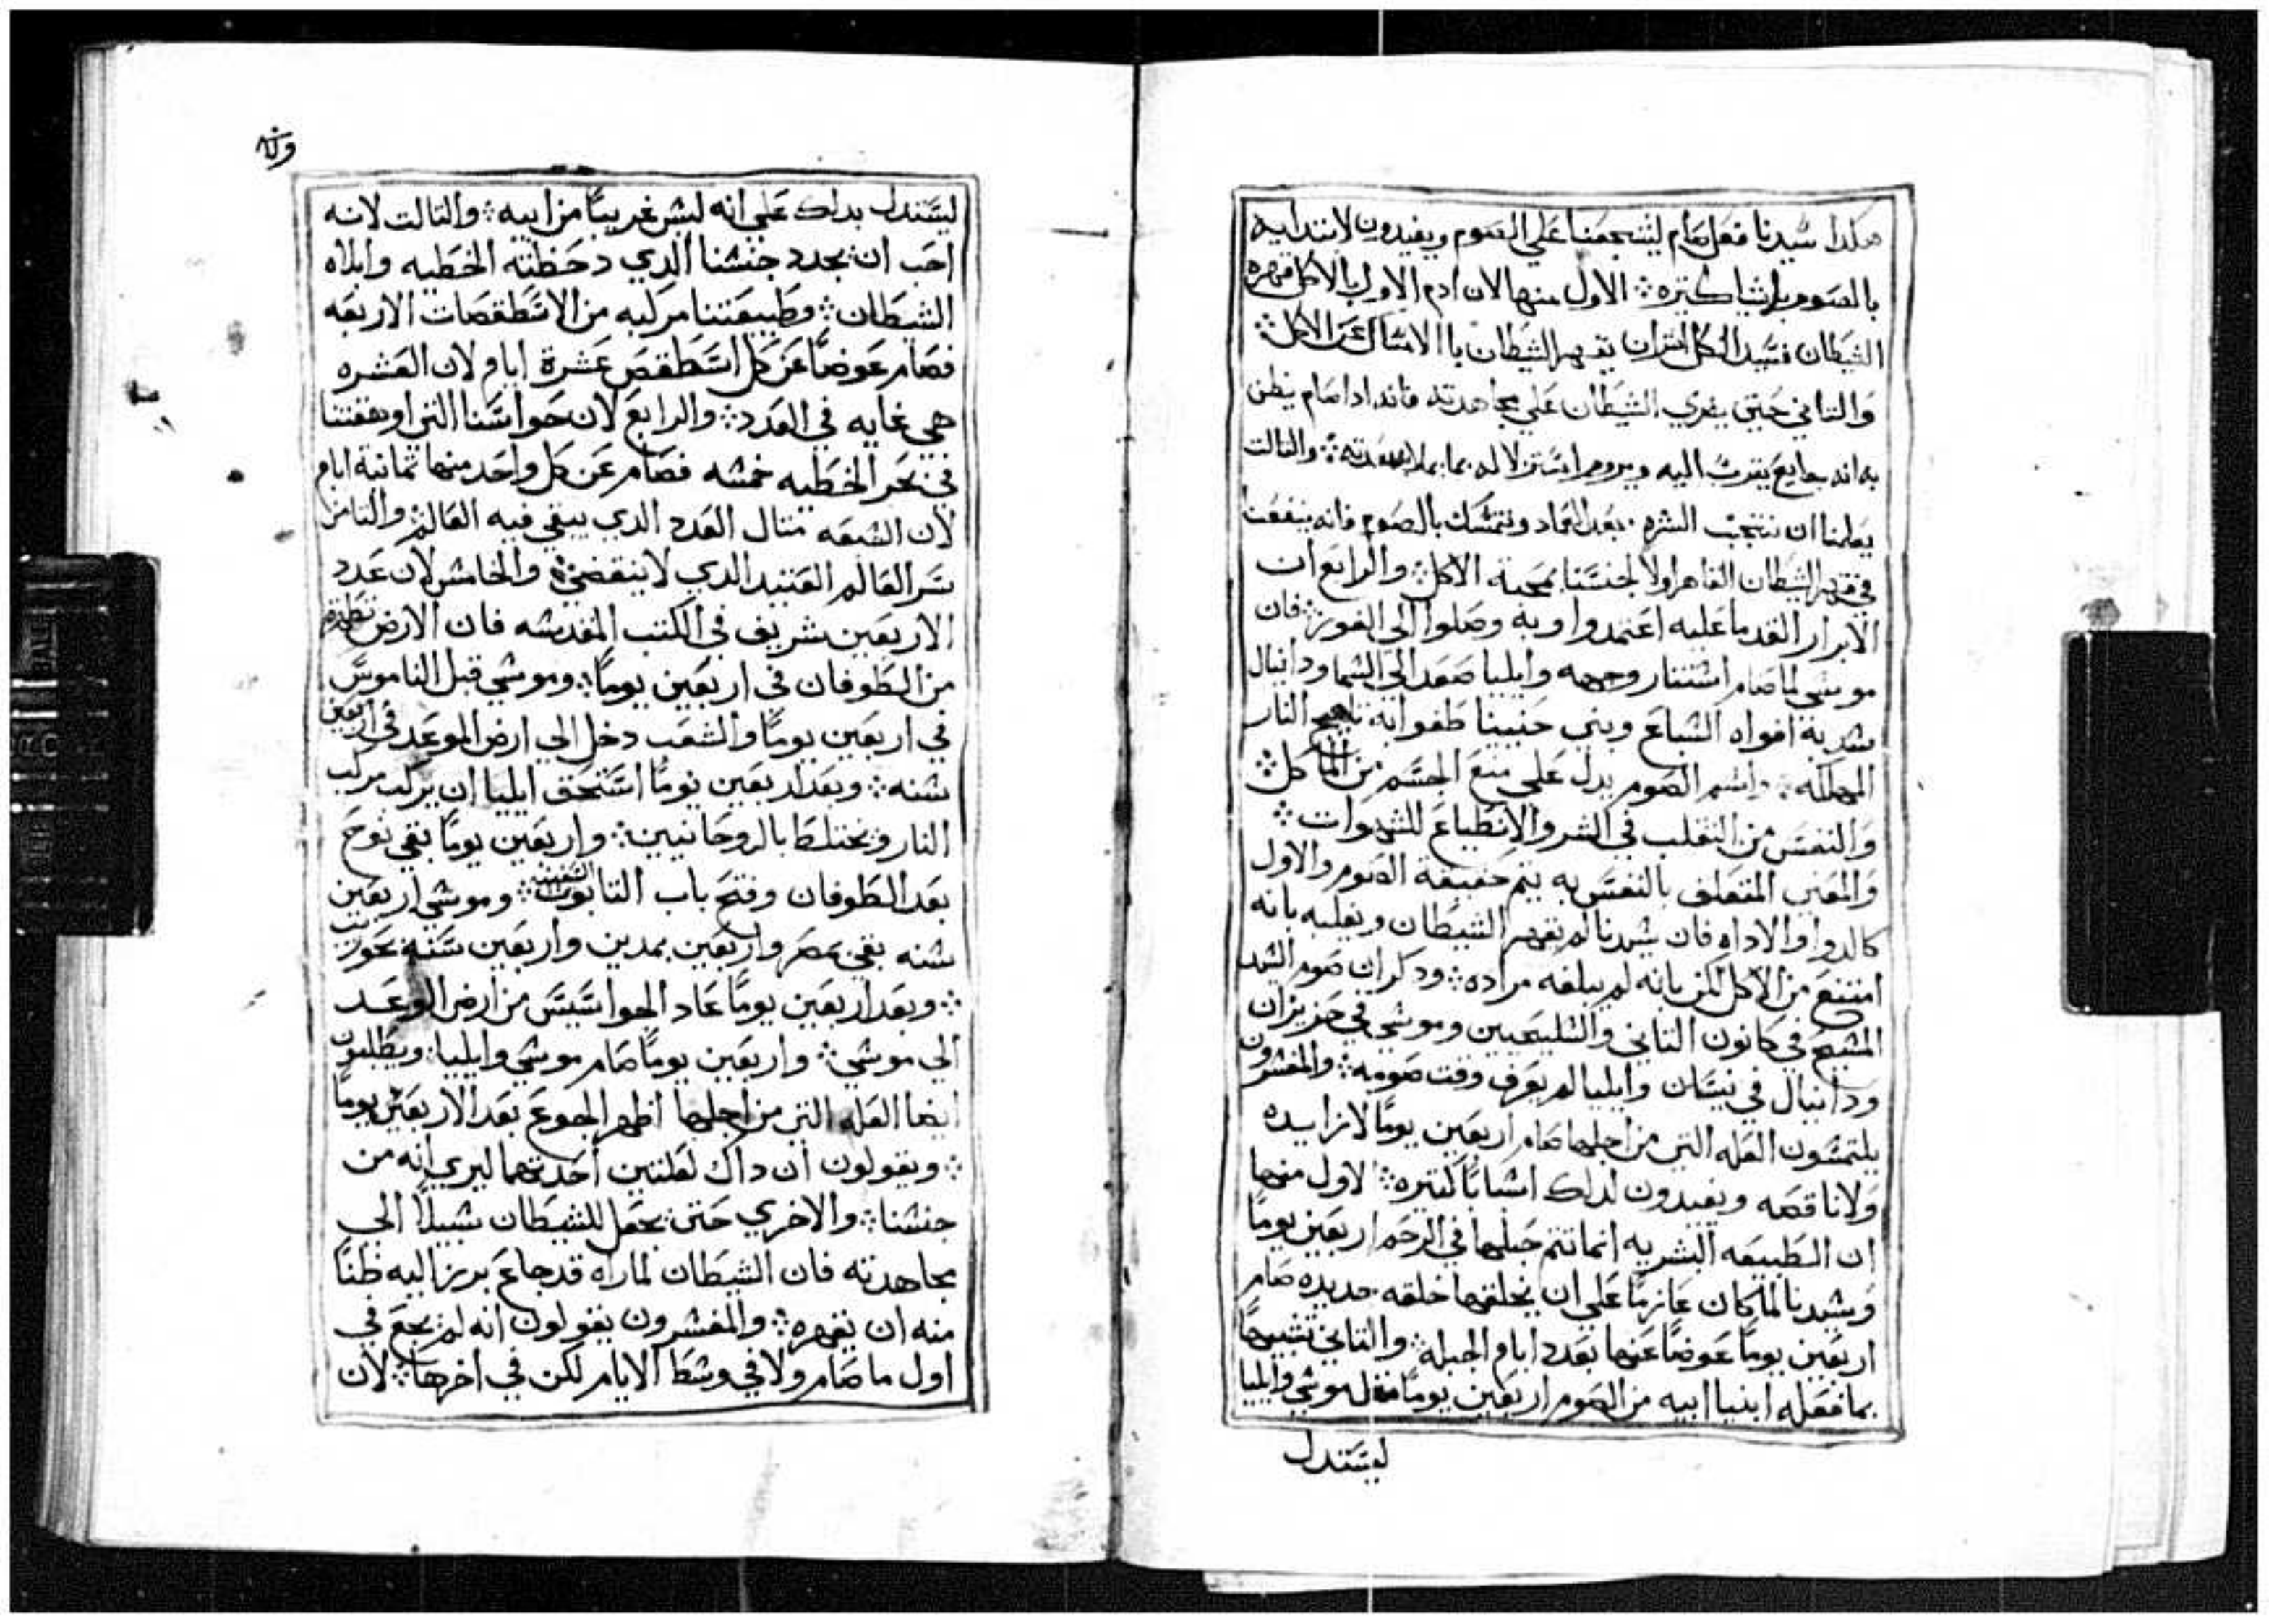 هكدا سيدنا فعل صام ليشجعنا علي الصوم ويفيدون لابتدايه
بالصوم باشيا كتيره ؛ الاول منها لان ادم الاول بالاكل قهره
الشيطان فسيد الكل اتران يقهر الشيطان باالامتثال عن الاكل ؛
والتاني حتي يغري الشيطان علي مجاهدته فانه ادا صام يظن
به انه جايع يقرب اليه ويروم استزلاله بما يملا معدته ؛ والتالت
يعلمنا ان نتجنب الشره بعد العماد ونتمسك بالصوم فانه ينفعنا
في قهر الشيطان القاهر اولا لجنسنا بمحبة الاكل ؛ والرابع ان
الابرار القدما عليه اعتمدوا وبه وصلوا الي الفوز ؛ فان
موسي لما صام استنار وجهه وايليا صعد الي السما ودانيال
سد به افواه السباع وبني حنينا طفوا به تاجج النار
المهلكه ؛ واسم الصوم يدل علي منع الجسم من الماكل ؛
والنفس من التقلب في الشر والانطباع للشهوات ؛
والمعني المتعلق بالنفس به يتم حقيقة الصوم والاول
كالدوا والاداه فان سيدنا لم يقهر الشيطان ويغلبه بانه
امتنع من الاكل لكن بانه لم يبلغه مراده ؛ ودكر ان صوم السيد
المسيح في كانون التاني والسليحيين وموسي في حزيران
ودانيال في نيسان وايليا لم يعرف وقت صومه ؛ والمفسرون
يلتمسون العله التي من اجلها صام اربعين يوما لا زايده
ولا ناقصه ويفيدون لدلك اسبابا كتيره ؛ الاول منها
ان الطبيعه البشريه انما تتم جبلها في الرحم اربعين يوما
وسيدنا لما كان عازما علي ان يخلقها خلقه جديده صام
اربعين يوما عوضا عنها بعدد ايام الجبله ؛ والتاني تشبيها
بما فعله انبيا ابيه من الصوم اربعين يوما متل موسي وايليا
ليستدل
ليستدل بدلك علي انه ليس غريبا من ابيه ؛ والتالت لانه
احب ان يجدد جنسنا الدي دحظته الخطيه وابلاه
الشيطان ؛ وطبيعتنا مركبه من الاسطقصات الاربعه
فصام عوضا عن كل اسطقص عشرة ايام لان العشره
هي غايه في العدد ؛ والرابع لان حواسنا التي اوهقتنا
في بحر الخطيه خمسه فصام عن كل واحد منها تمانية ايام
لان السبعه متال العدد الدي يبقي فيه العالم والتامن
سر العالم العتيد الدي لا ينقضي ؛ والخامس لان عدد
الاربعين شريف في الكتب المقدسه فان الارض تطهرة
من الطوفان في اربعين يوما ؛ وموسي قبل الناموس
في اربعين يوما والشعب دخل الي ارض الموعد في اربعين
سنه ؛ وبعد اربعين يوما استحق ايليا ان يركب مركب
النار ويختلط بالروحانيين ؛ واربعين يوما بقي نوح
بعد الطوفان وفتح باب التابوت السفينه ؛ وموسي اربعين
سنه بقي بمصر واربعين بمدين واربعين سنة بحوريب
؛ وبعد اربعين يوما عاد الجواسيس من ارض الوعد
الي موسي ؛ واربعين يوما صام موسي وايليا ؛ ويطلبون
ايضا العله التي من اجلها اظهر الجوع بعد الاربعين يوما
؛ ويقولون ان داك لعلتين احدتهما ليري انه من
جنسنا ؛ والاخري حتي يجعل للشيطان سبيلا الي
مجاهدته فان الشيطان لما راه قد جاع برز اليه ظنا
منه ان يقهره ؛ والمفسرون يقولون انه لم يجع في
اول ما صام ولا في وسط الايام لكن في اخرها ؛ لان